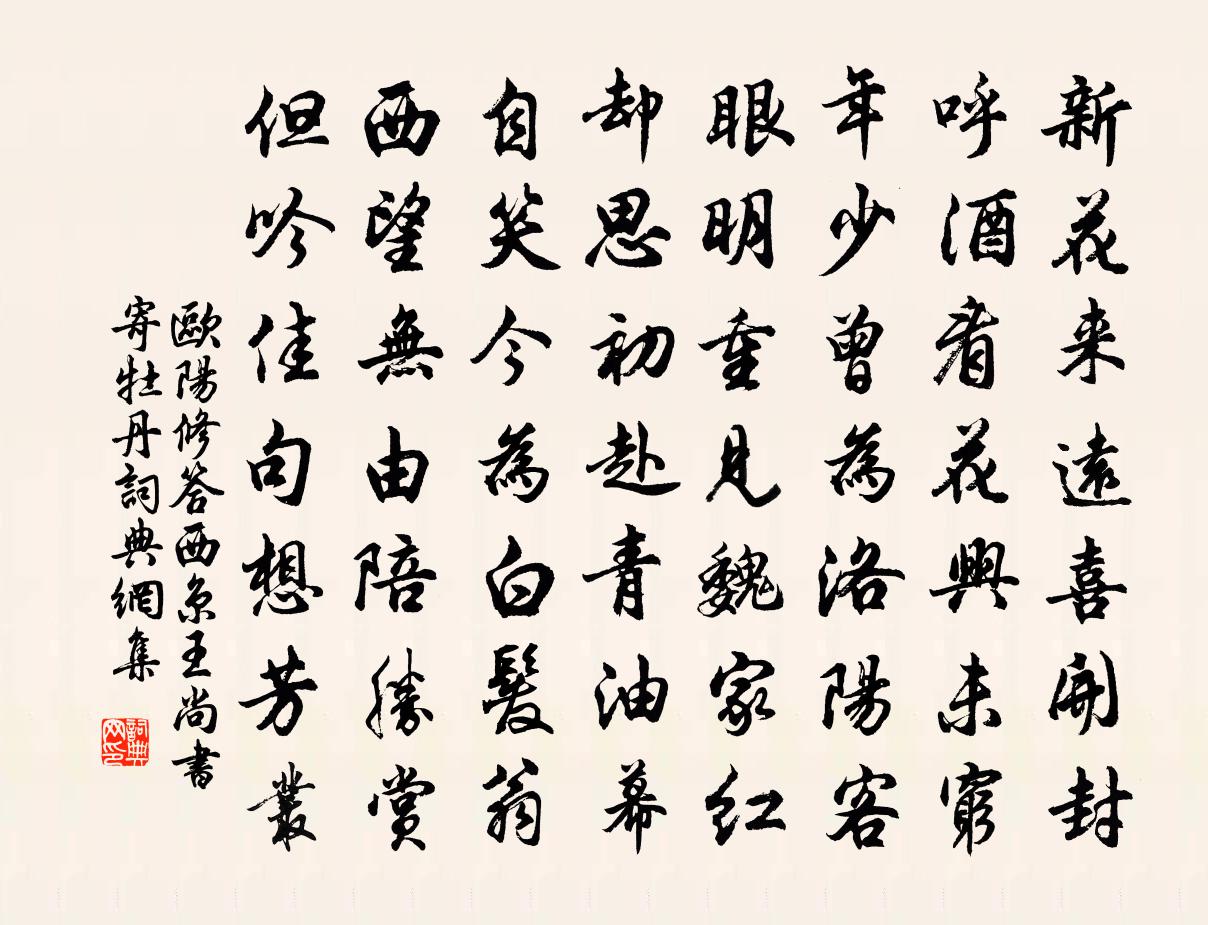 新花来遠喜開封
呼酒看花興未窮
年少曾為洛陽客
眼明重見魏家红
却思初赴青油幕
自笑今為白髮翁
西望無由陪勝賞
但吟佳句想芳叢
歐陽修答西京王尚書
寄牡丹詞典網集
詞典
网印